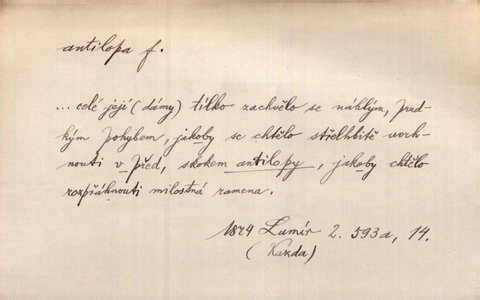 antilopa f.
... celé její (dámy) tílko zachvělo se náhlým, prud-
kým pohybem, jakoby se chtělo střelhbitě vvrh-
nouti v před, skokem antilopy, jakoby chtělo
rozpřáhnouti milostná ramena.
1874 Lumír 2. 593a, 14.
(Kazda)